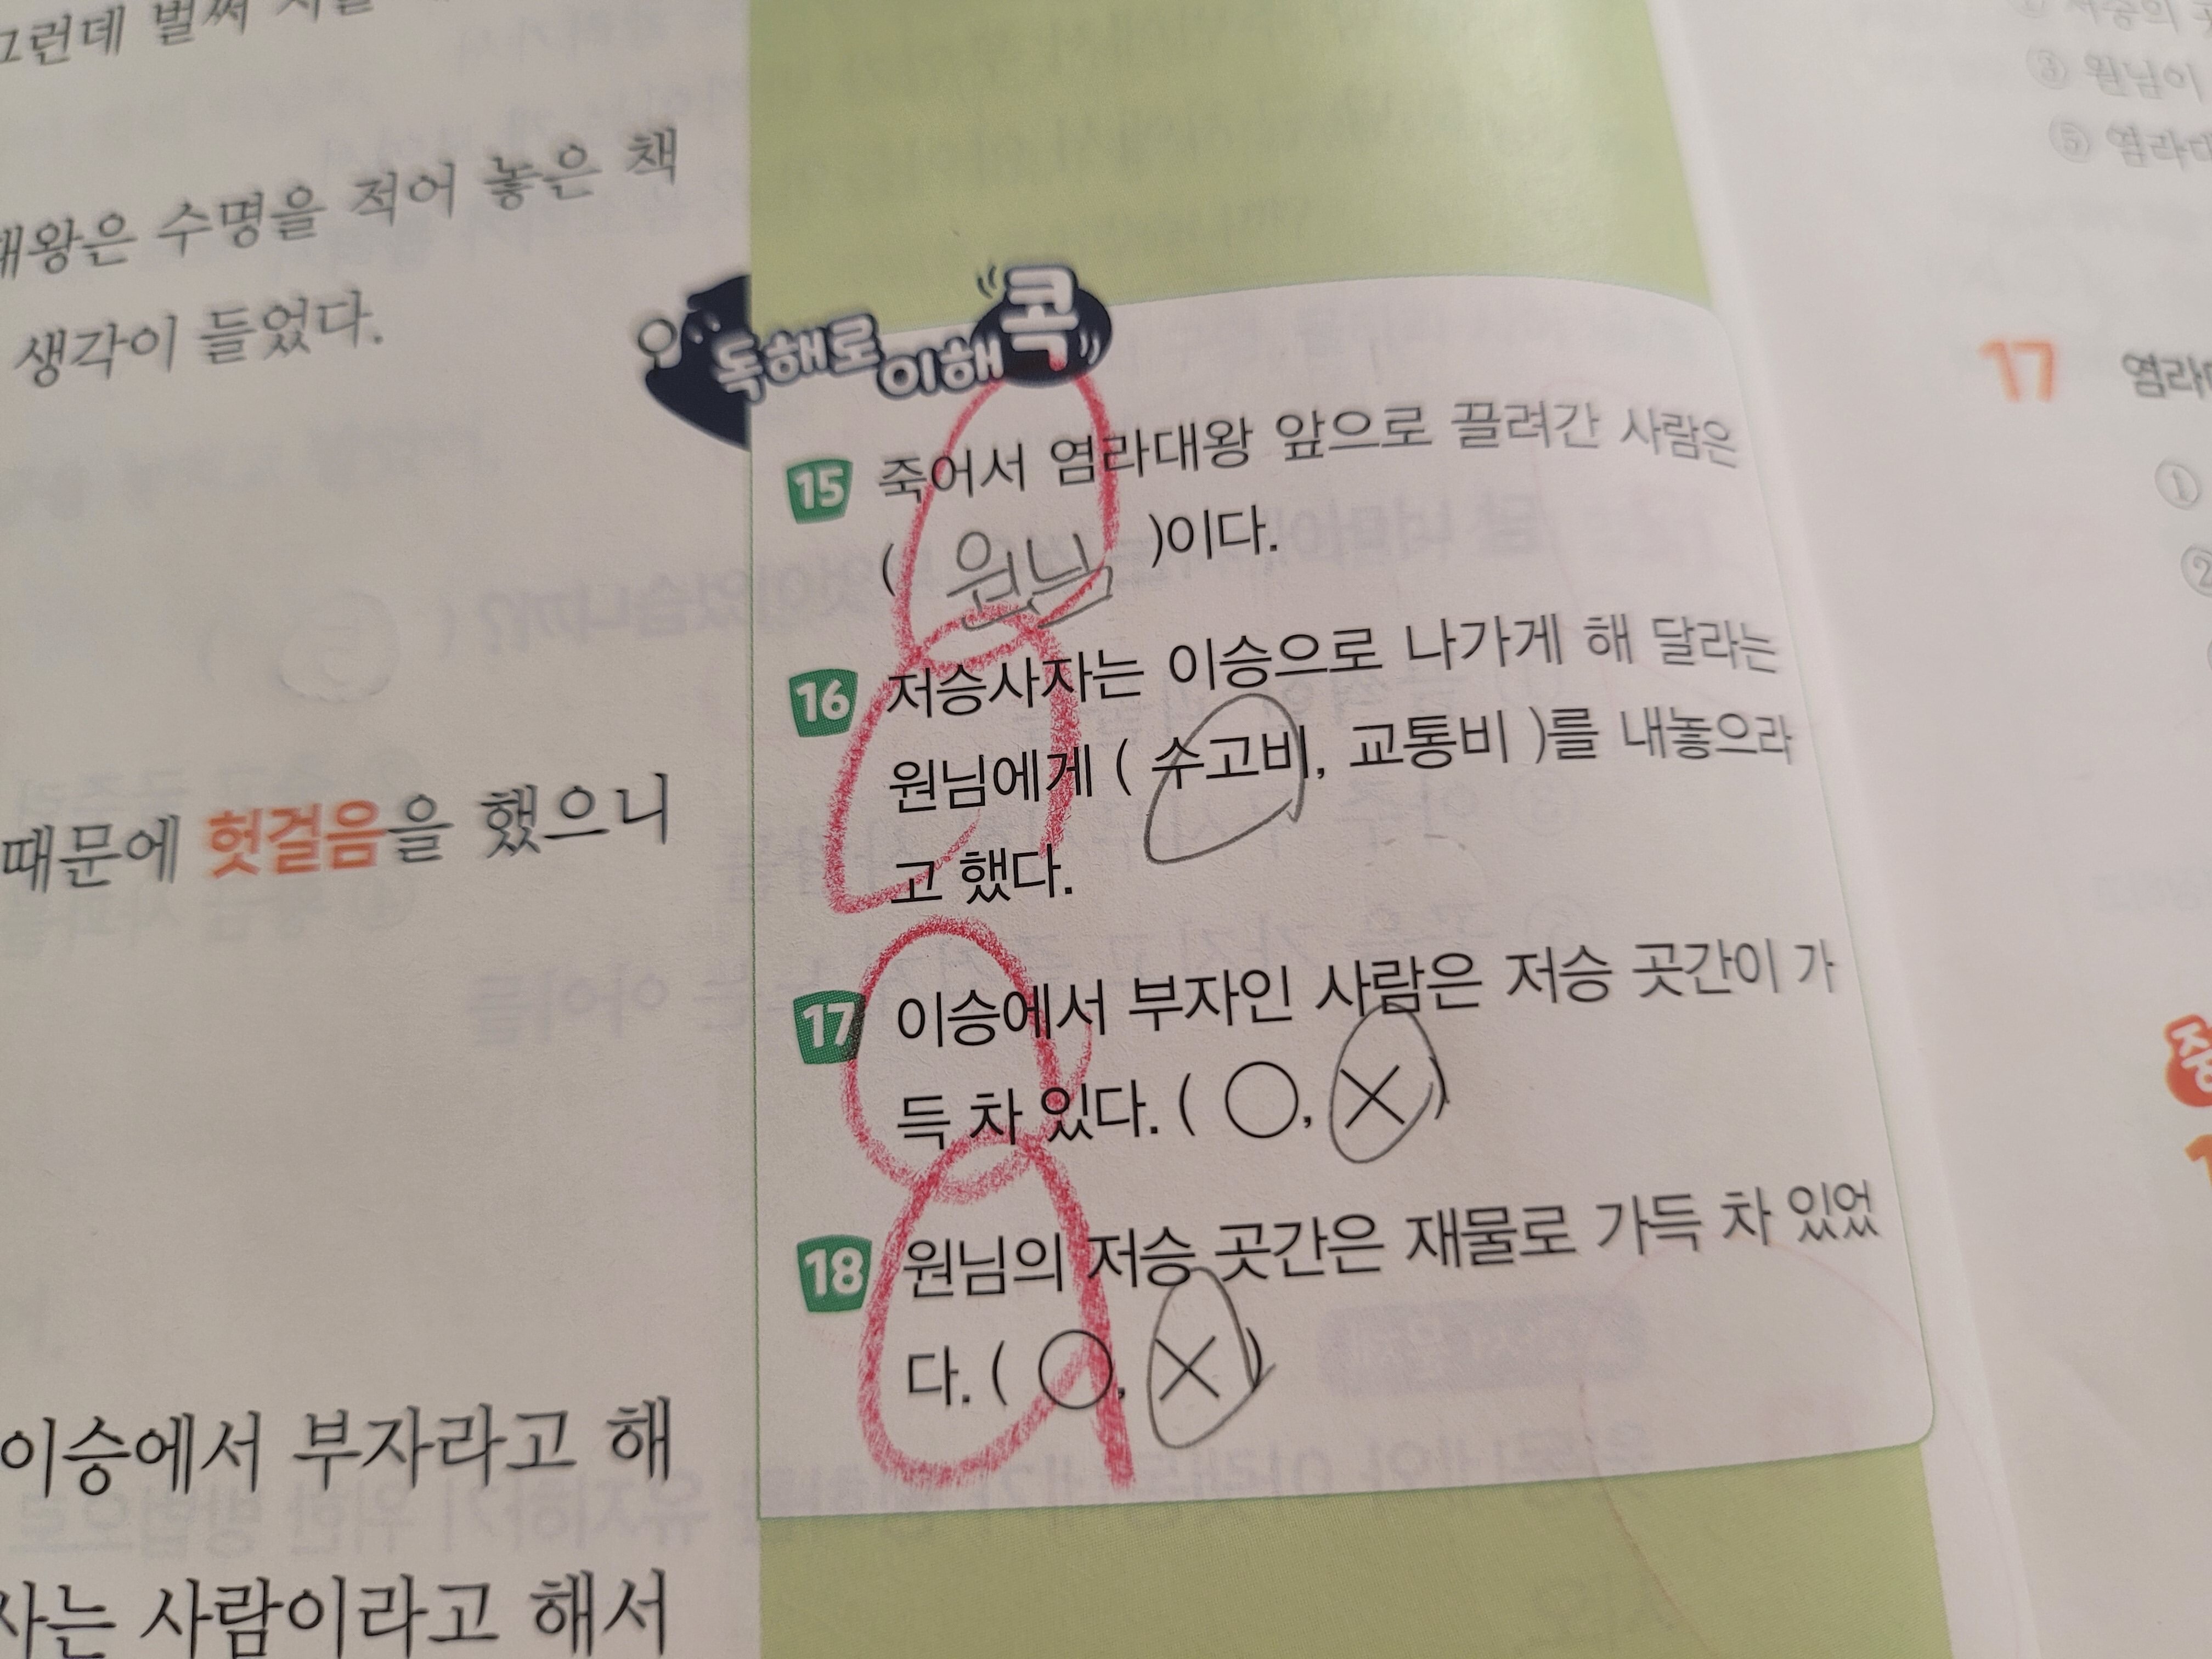 그런데 벌써
대왕은 수명을 적어 놓은 책
생각이 들었다.
때문에 헛걸음을 했으니
이승에서 부자라고 해
사는 사람이라고 해서
독해로 이해 콕
15 죽어서 염라대왕 앞으로 끌려간 사람은
( 원님 )이다.
16 저승사자는 이승으로 나가게 해 달라는
원님에게 ( 수고비, 교통비 )를 내놓으라
고 했다.
17 이승에서 부자인 사람은 저승 곳간이 가
득 차 있다. ( ○, × )
18 원님의 저승 곳간은 재물로 가득 차 있었
다. ( ○, × )
③ 원님이
⑤ 염라대
17 염라대
①
②